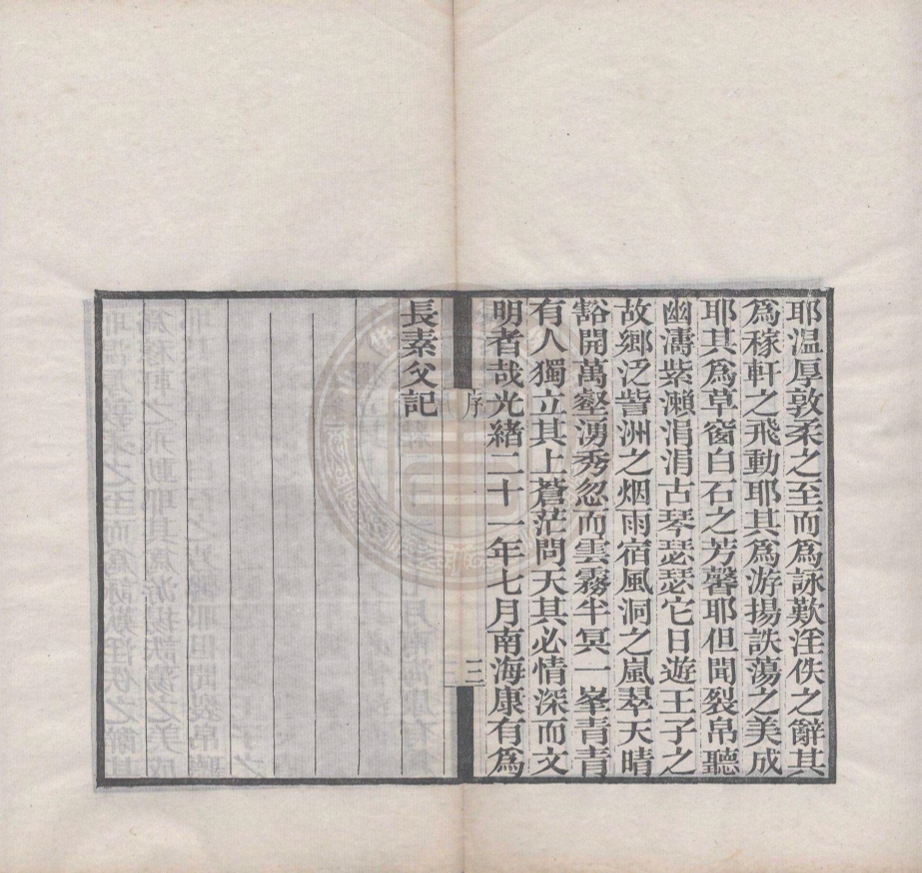 耶温厚敦柔之至而爲詠歎淫佚之辭其
爲稼軒之飛動耶其爲游揚訣蕩之美成
耶其爲草窗白石之芳馨耶但聞裂帛聽
幽濤紫瀨涓涓古琴瑟瑟它日遊王子之
故鄉泛訾洲之烟雨宿風洞之嵐翠天晴
豁開萬壑湧秀忽而雲霧半冥一峯青青
有人獨立其上蒼茫問天其必情深而文
明者哉光緒二十一年七月南海康有爲
序
三
長素父記